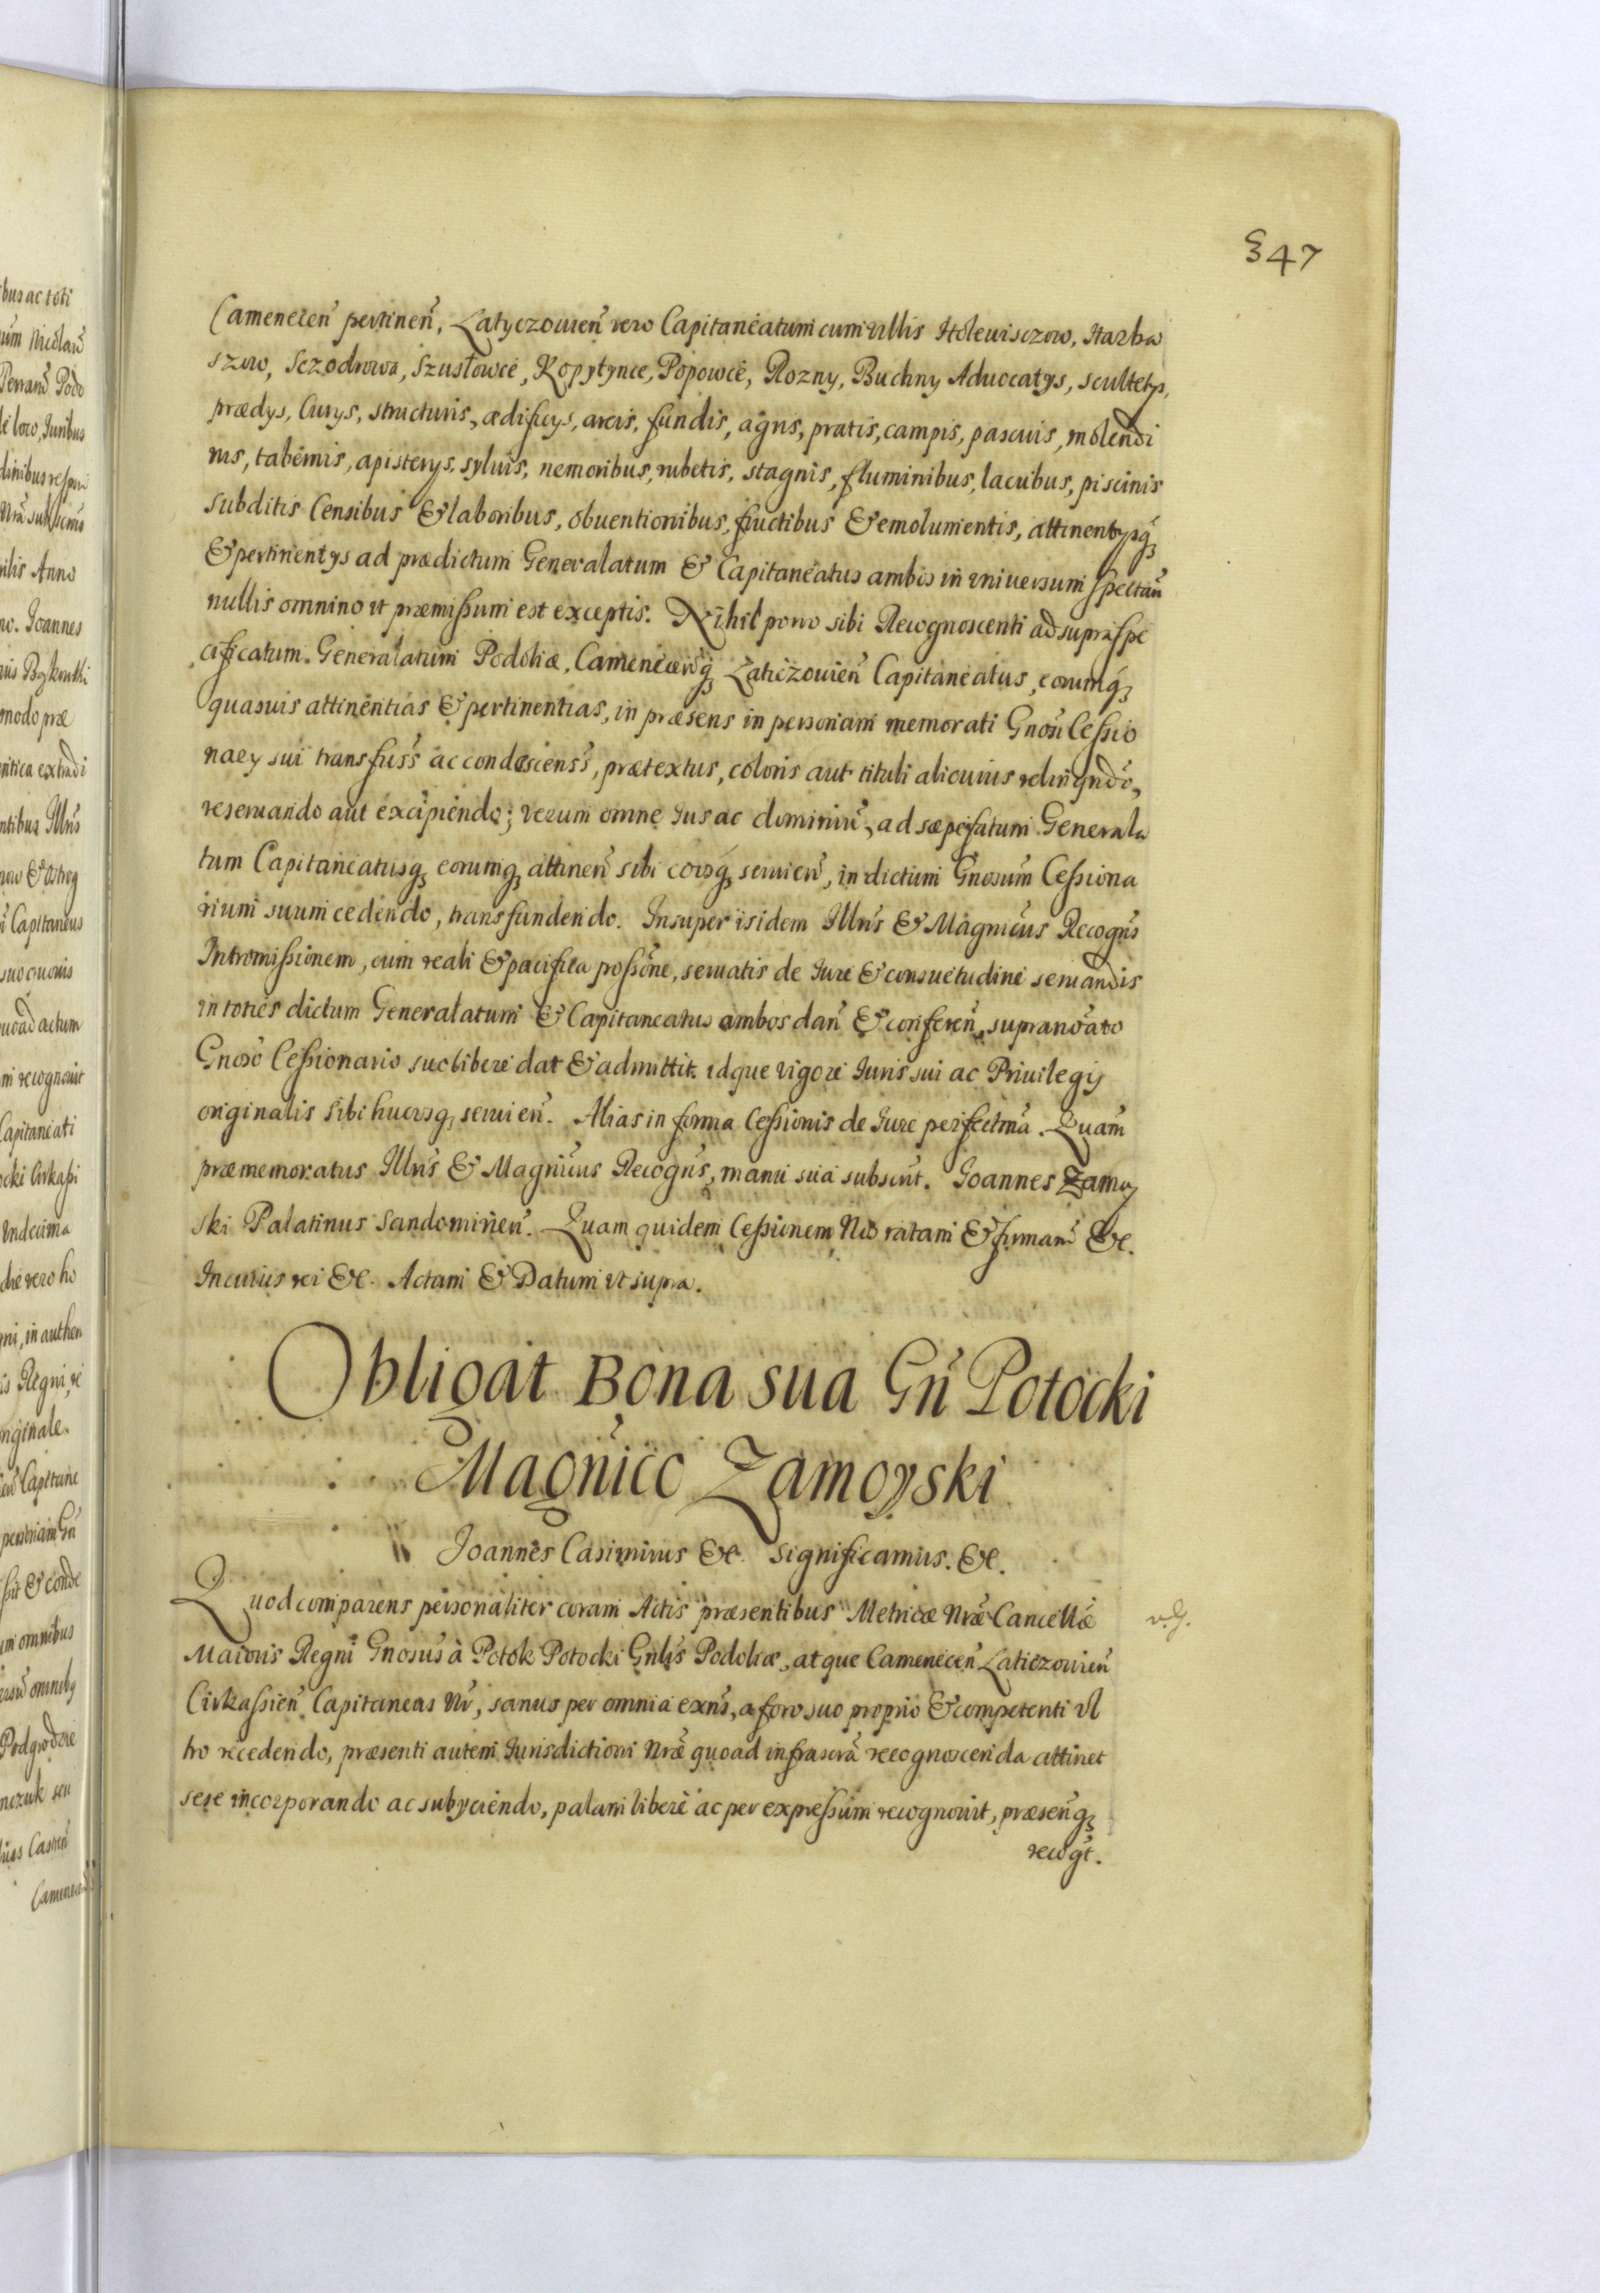 347
Camenecen̄ pertinen̄, Latyczouien̄ vero Capitaneatum cum villis Holeuisczow, Harba
szow, Sczodrowa, Szusłowce, Kopytynce, Popowce, Rozny, Buchny Aduocatys, scultetys,
prædys, Curys, structuris, ædificys, areis, fundis, agris, pratis, campis, pascuis, molendi
nis, tabernis, apisterys, syluis, nemoribus, rubetis, stagnis, fluminibus, lacubus, piscinis
subditis Censibus & laboribus, obuentionibus, fructibus & emolumentis, attinentysq̧
& pertinentys ad prædictum Generalatum & Capitaneatus ambos in vniuersum spectan̄
nullis omnino vt præmissum est exceptis. Nihil porro sibi Recognoscenti ad supraspe
cificatum Generalatum Podoliæ, Camenecen̄q̧ Laticzouien̄ Capitaneatus, eorumq̧
quasuis attinentias & pertinentias, in præsens in personam memorati Gnosi Cessio
nary sui transfuss̄ ac condescenss̄, prætextus, coloris aut tituli alicuius relinqn̄do,
reseruando aut excipiendo; verum omne Ius ac dominiū, ad sæpefatum Generala
tum Capitaneatusq̧ eorumq̧ attinen̄ sibi coūsq̧ seruien̄, in dictum Gnosum Cessiona
rium suum cedendo, transfundendo. Insuper isidem Illrīs & Magnicus Recogn̄s
Intromissionem, cum reali & pacifica possōne, seruatis de Iure & consuetudine seruandis
in toties dictum Generalatum & Capitaneatus ambos dan̄ & conferen̄, supranoāto
Gnoso Cessionario suo libere dat & admittit. idque vigore Iuris sui ac Priuilegy
originalis sibi hucusq̧ seruien̄. Alias in forma Cessionis de Iure perfectmā. Quam
præmemoratus Illrīs & Magnicus Recogn̄s, manu sua subscrīt. Joannes Zamoy
ski Palatinus Sandomirien̄. Quam quidem Cessionem Nos ratam & firmam &c.
In cuius rei &c. Actam & Datum vt supra.
Obligat Bona sua Gn̄ Potocki
Magnico Zamoyski
Joannes Casimirus &c. significamus. &c.
Quod comparens personaliter coram Actis præsentibus Metricæ Nrǣ Cancellǣ
Maioris Regni Gnosus à Potok Potocki Gnlīs Podoliæ, atque Camenecen̄ Laticzouien̄
Cirkassien̄ Capitaneus Nr̄, sanus per omnia exn̄s, a foro suo proprio & competenti vl
tro recedendo, præsenti autem Iurisdictioni Nrǣ quoad infrascrā recognoscenda attinet
sese incorporando ac subyciendo, palam libere ac per expressum recognouit, præsen̄q̧
recogt̄.